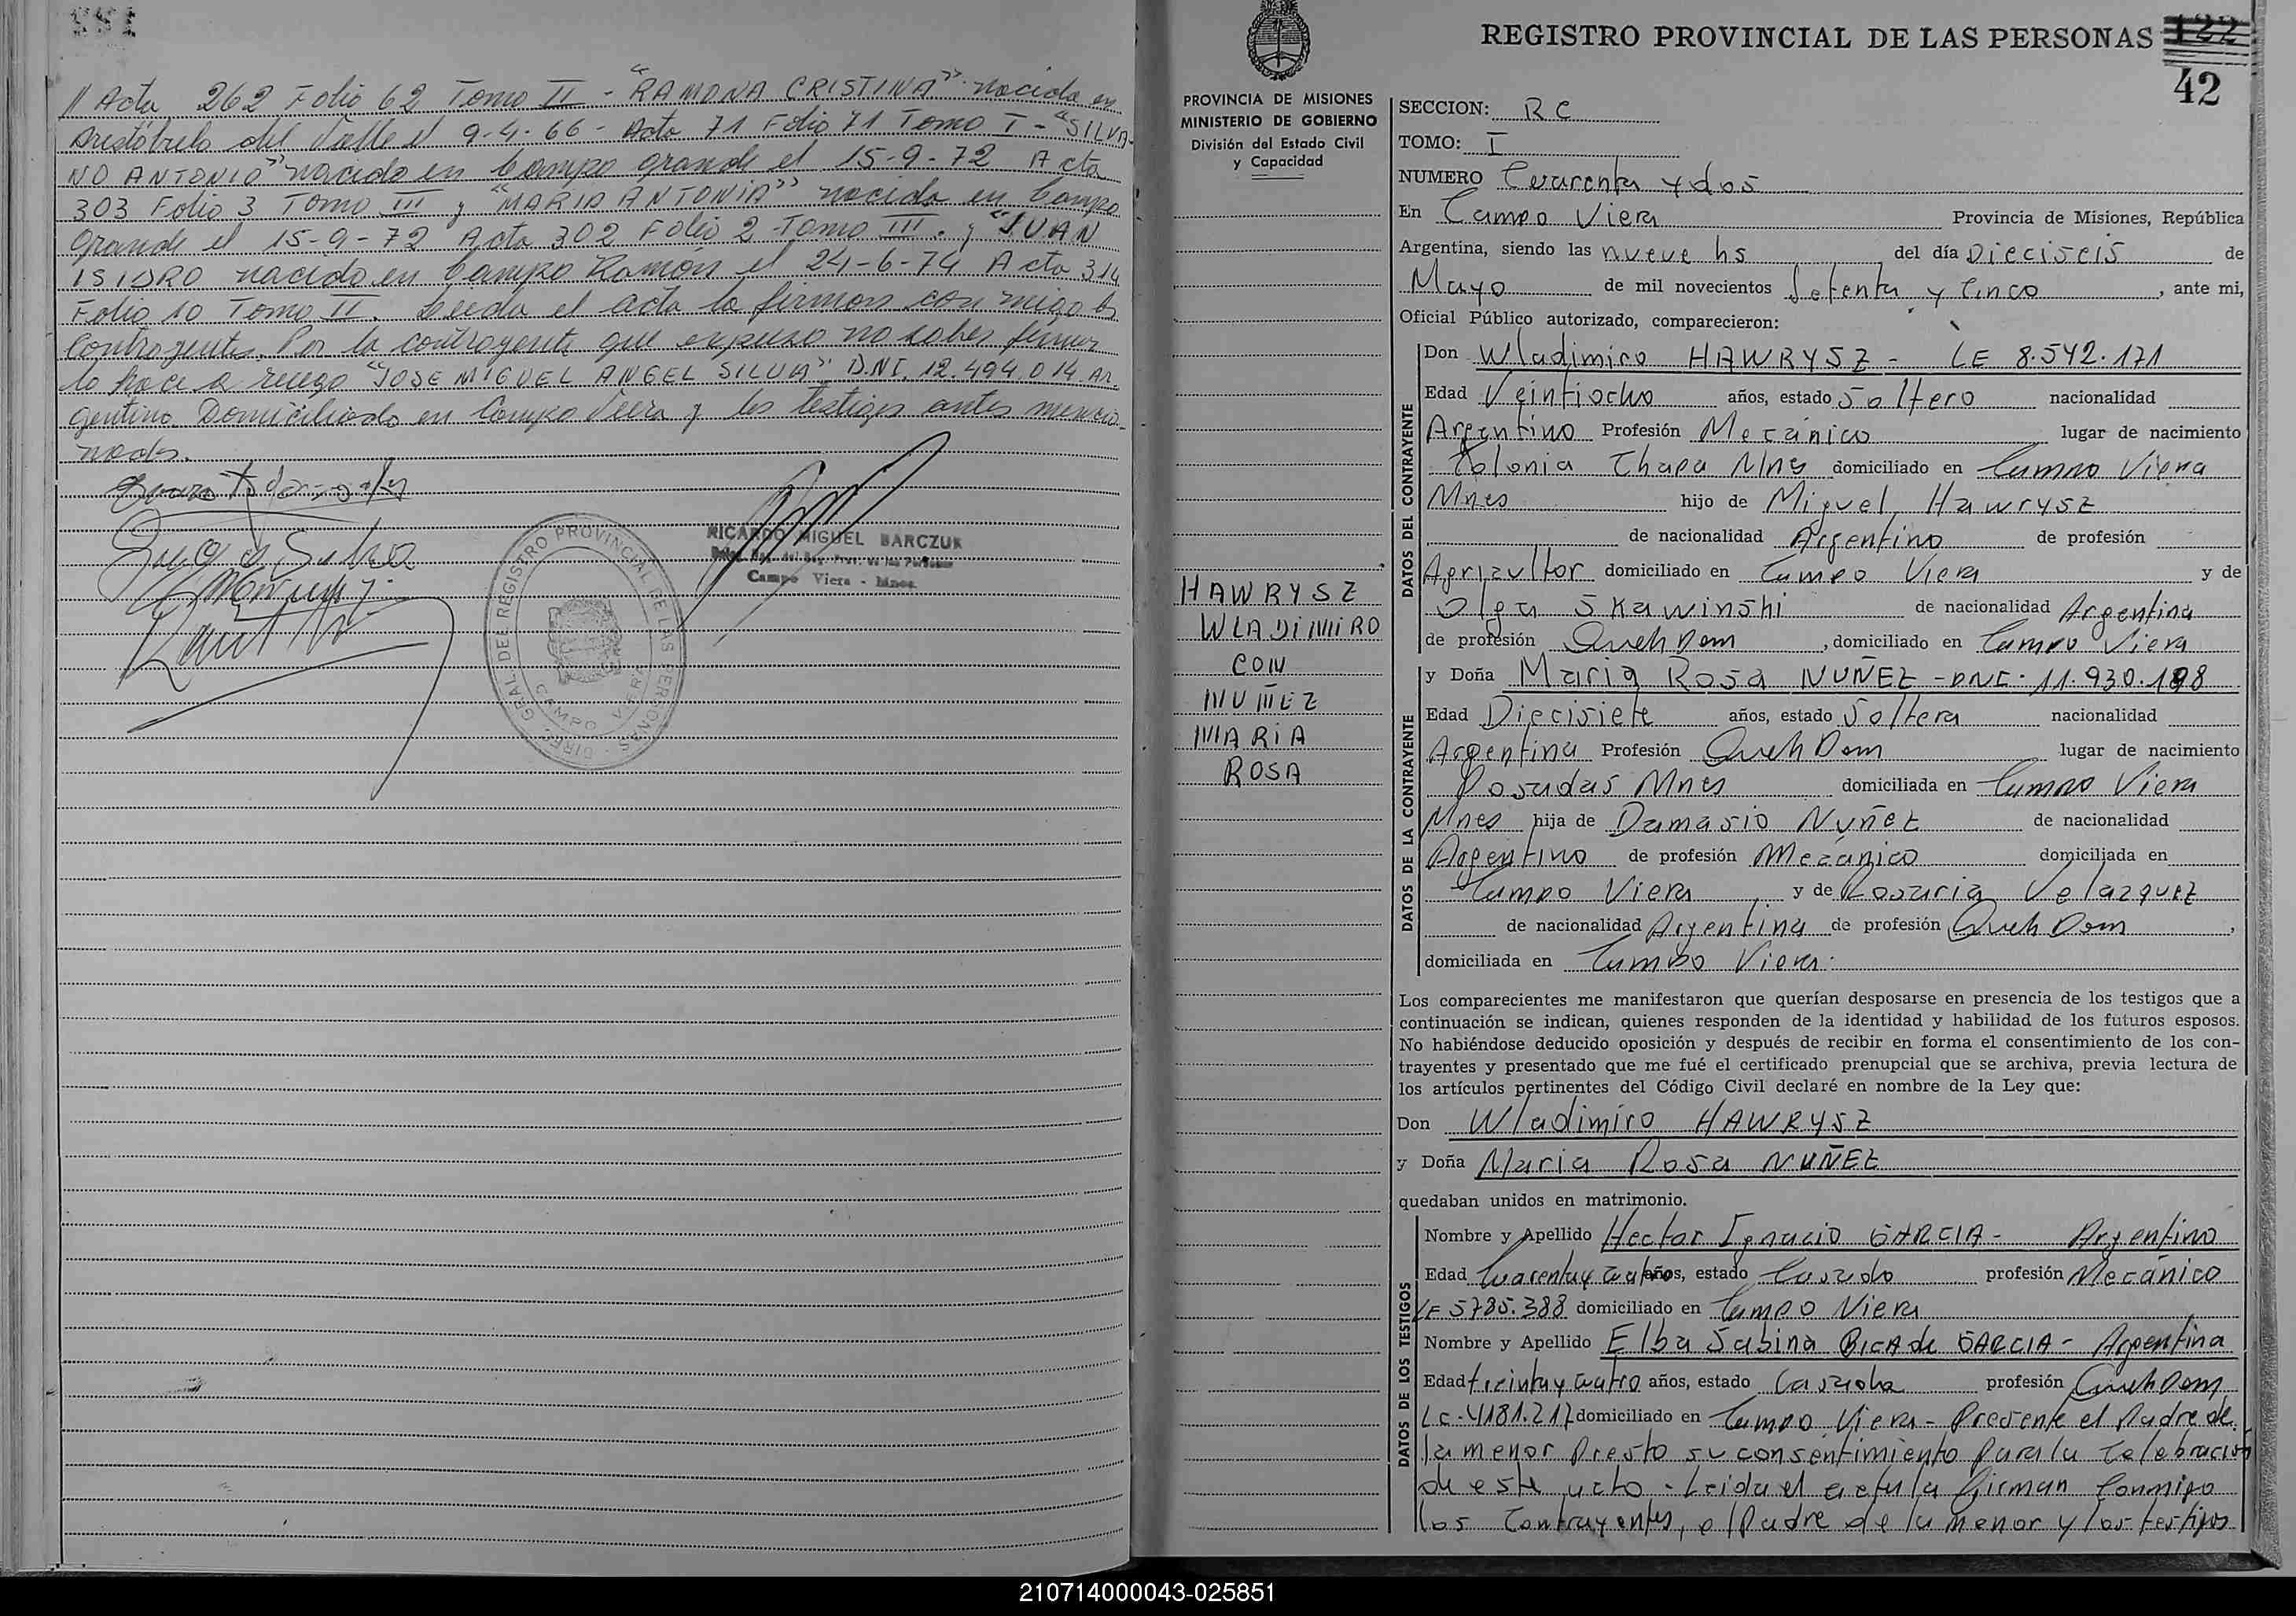 // Acta 262 Folio 62 Tomo II - "RAMONA CRISTINA" nacida en
Aristóbulo del Valle el 9-4-66 - Acta 71 Folio 71 Tomo I - "SILVA-
NO ANTONIO" nacido en Campo Grande el 15-9-72 Acta
303 Folio 3 Tomo III y "MARIA ANTONIA" nacida en Campo
Grande el 15-9-72 Acta 302 Folio 2 Tomo III. y "JUAN
ISIDRO nacido en Campo Ramón el 24-6-74 Acta 314
Folio 10 Tomo II. Leida el acta la firman con migo los
Contrayentes. Por la contrayente que expuso no saber firmar
lo hace a ruego "JOSE MIGUEL ANGEL SILVA" DNI. 12.494.014 Ar-
gentino Domiciliado en Campo Viera y los testigos antes mencio-
nados.
RICARDO MIGUEL BARCZUK
Campo Viera - Mnes.
DIREC. GRAL DEL REGISTRO PROVINCIAL DE LAS PERSONAS
CAMPO VIERA
REGISTRO PROVINCIAL DE LAS PERSONAS
122
42
PROVINCIA DE MISIONES
MINISTERIO DE GOBIERNO
División del Estado Civil
y Capacidad
HAWRYSZ
WLADIMIRO
CON
NUÑEZ
MARIA
ROSA
SECCION: RC
TOMO: I
NUMERO Cuarenta y dos
En Campo Viera Provincia de Misiones, República
Argentina, siendo las nueve hs del día Dieciseis de
Mayo de mil novecientos Setenta y Cinco, ante mi,
Oficial Público autorizado, comparecieron:
DATOS DEL CONTRAYENTE
Don Wladimiro HAWRYSZ - LE 8.542.171
Edad Veintiocho años, estado Soltero nacionalidad
Argentino Profesión Mecánico lugar de nacimiento
Colonia Chapa Mnes domiciliado en Campo Viera
Mnes hijo de Miguel Hawrysz
de nacionalidad Argentino de profesión
Agricultor domiciliado en Campo Viera y de
Olga Skawinski de nacionalidad Argentina
de profesión Queh Dom, domiciliado en Campo Viera
DATOS DE LA CONTRAYENTE
y Doña Maria Rosa NUÑEZ - DNI. 11.930.198
Edad Diecisiete años, estado Soltera nacionalidad
Argentina Profesión Queh Dom lugar de nacimiento
Posadas Mnes domiciliada en Campo Viera
Mnes hija de Damasio Nuñez de nacionalidad
Argentino de profesión Mecánico domiciliada en
Campo Viera y de Rosaria Velazquez
de nacionalidad Argentina de profesión Queh Dom,
domiciliada en Campo Viera.
Los comparecientes me manifestaron que querían desposarse en presencia de los testigos que a
continuación se indican, quienes responden de la identidad y habilidad de los futuros esposos.
No habiéndose deducido oposición y después de recibir en forma el consentimiento de los con-
trayentes y presentado que me fué el certificado prenupcial que se archiva, previa lectura de
los artículos pertinentes del Código Civil declaré en nombre de la Ley que:
Don Wladimiro HAWRYSZ
y Doña Maria Rosa NUÑEZ
quedaban unidos en matrimonio.
DATOS DE LOS TESTIGOS
Nombre y Apellido Hector Ignacio GARCIA - Argentino
Edad Cuarenta y Cuatro años, estado Casado profesión Mecánico
LE 5785.388 domiciliado en Campo Viera
Nombre y Apellido Elba Sabina BICA de GARCIA - Argentina
Edad treinta y cuatro años, estado Casada profesión Queh Dom
LC. 4181.217 domiciliado en Campo Viera - Presente el Padre de
la menor Presto su consentimiento Para la Celebracion
de este acto - Leida el acta la firman Conmigo
los Contrayentes, el Padre de la menor y los testigos
210714000043-025851